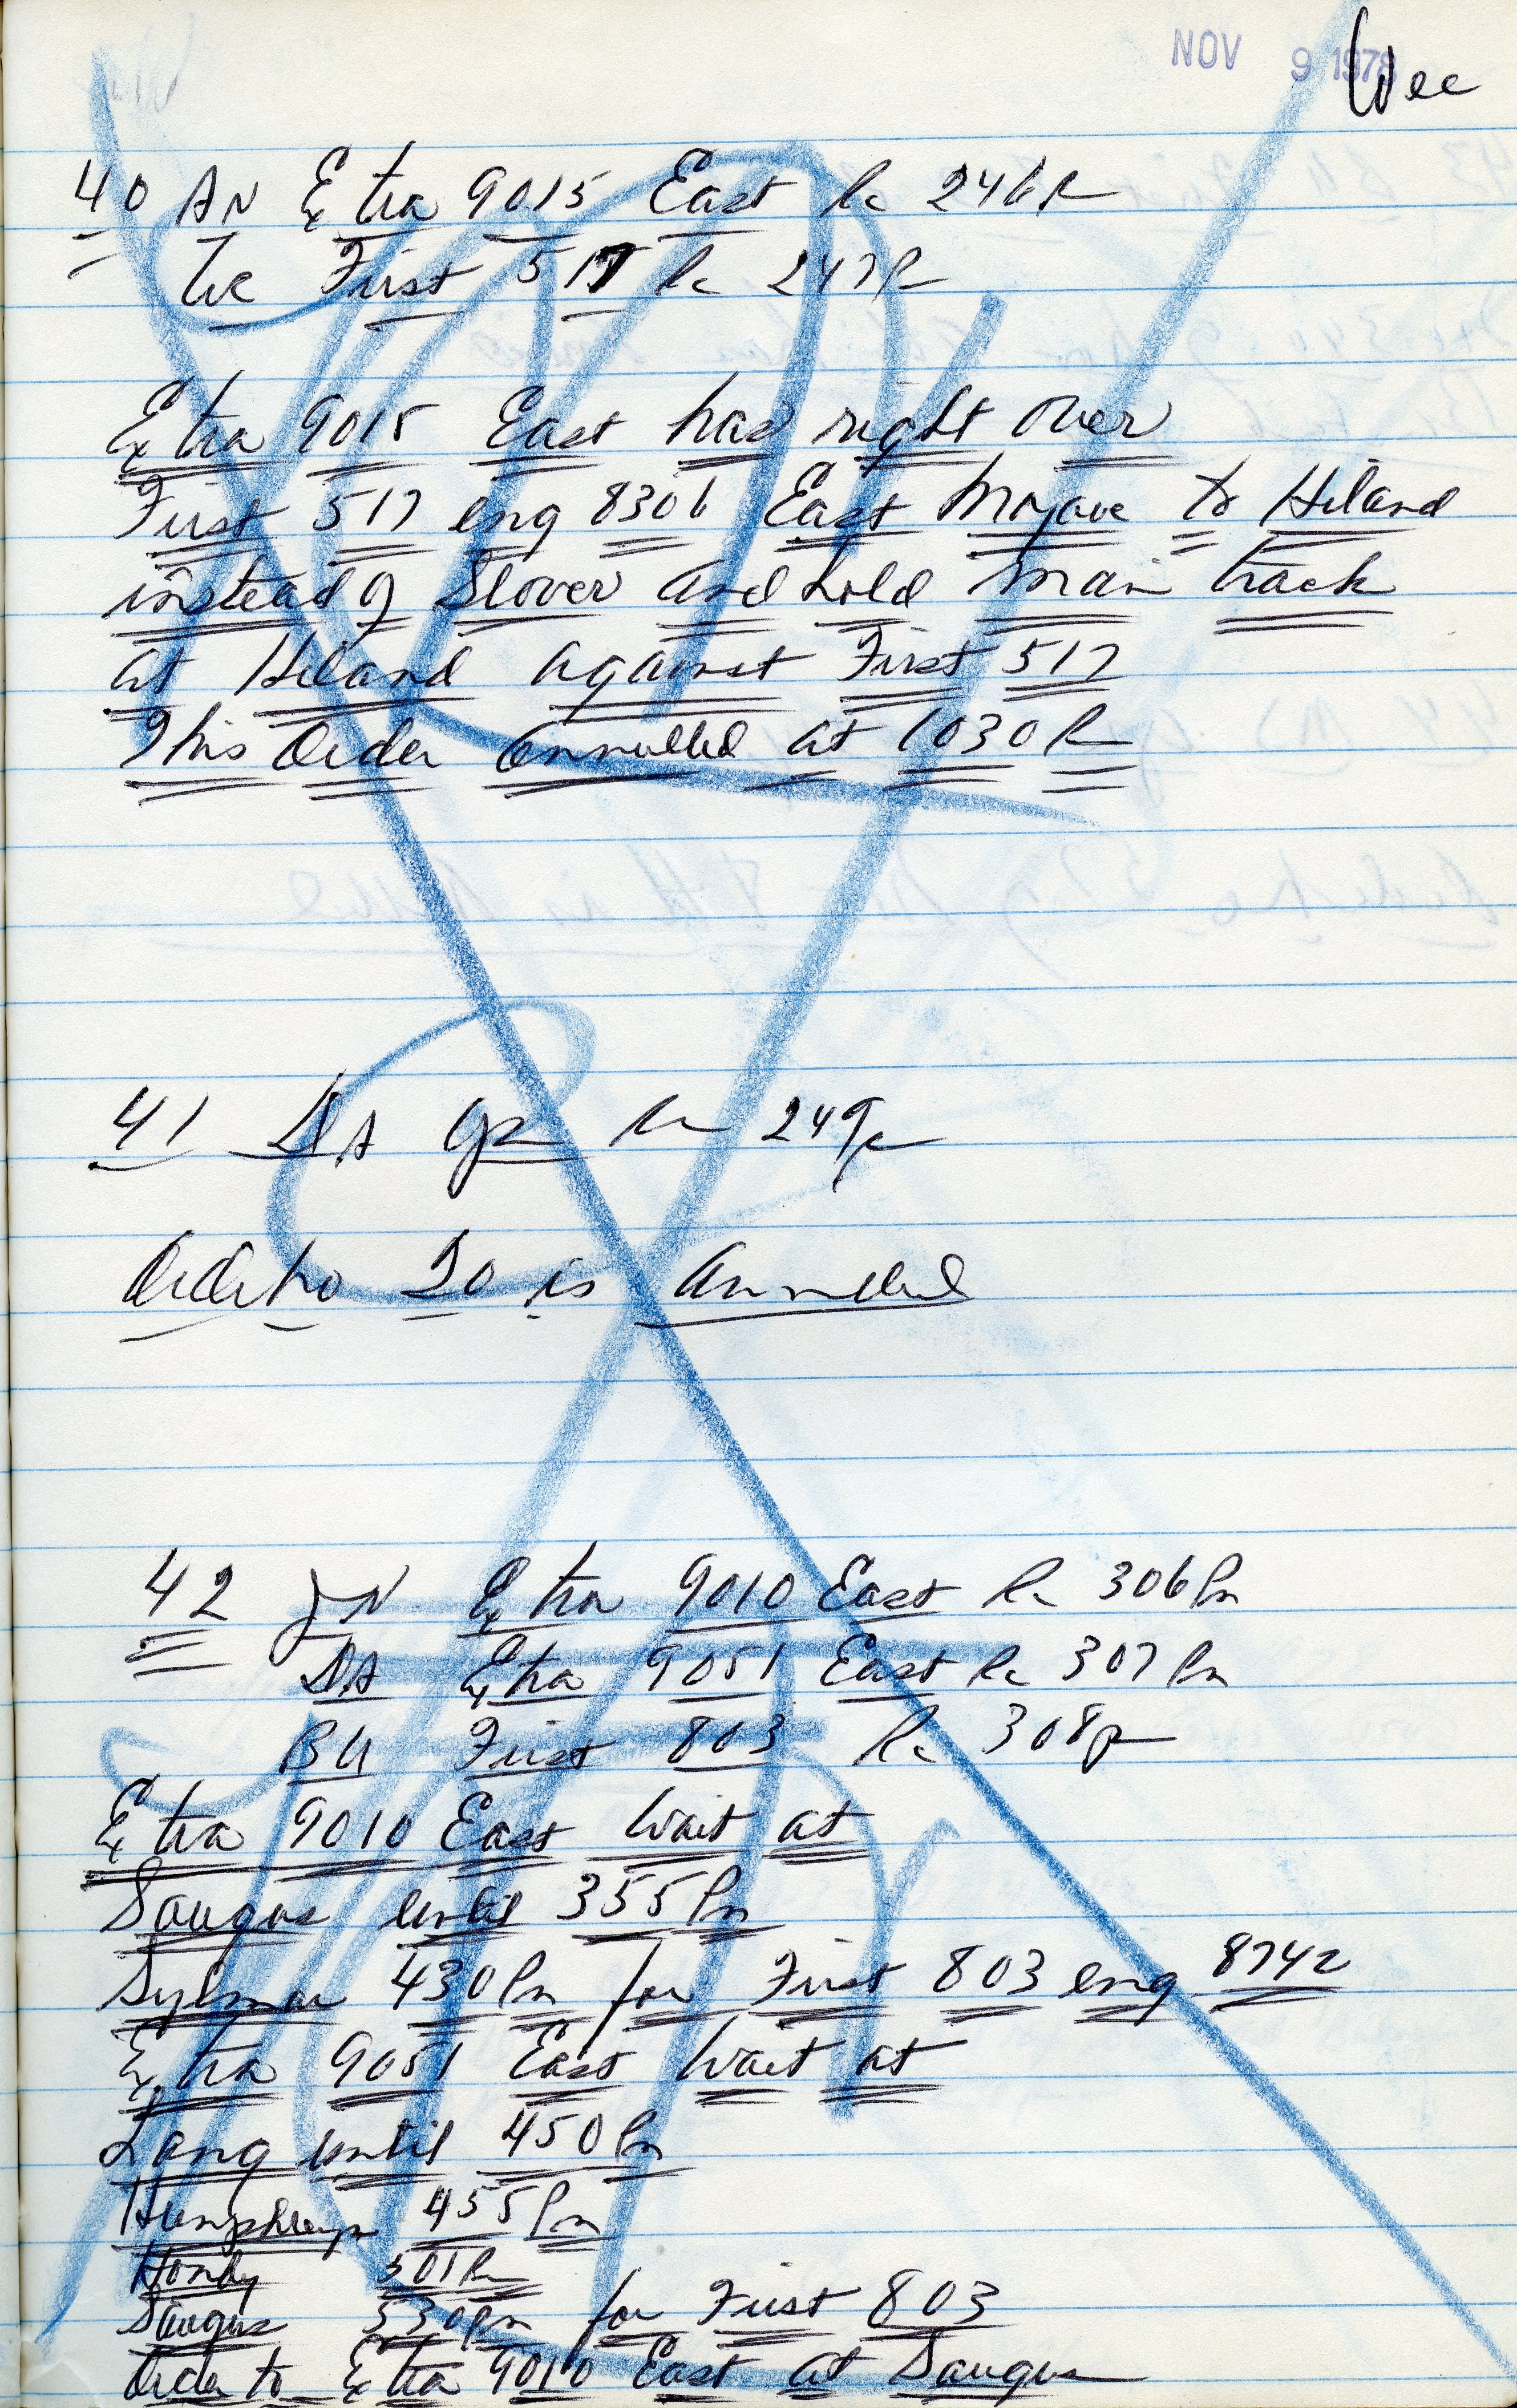 NOV 9 1978
40 AN Extra 9015 East Rc 246P
First 517 Rc 247P
Extra 9015 East has right over
First 517 eng 8306 East Mojave to Hiland
instead of Slover and hold main track
at Hiland against First 517
This Order Annulled at 1030P
41 249P
Order No 20 is Annulled
42 JN Extra 9010 East Rc 306Pm
SA Extra 9051 East Rc 307Pm
BU First 803 Rc 308P
Extra 9010 East wait at
Saugus until 355Pm
Sylmar 430Pm for First 803 eng 8742
Extra 9051 East wait at
Lang until 450Pm
Humphreys 455Pm
Honby 501Pm
Saugus 530Pm for First 803
Order to Extra 9010 East at Saugus